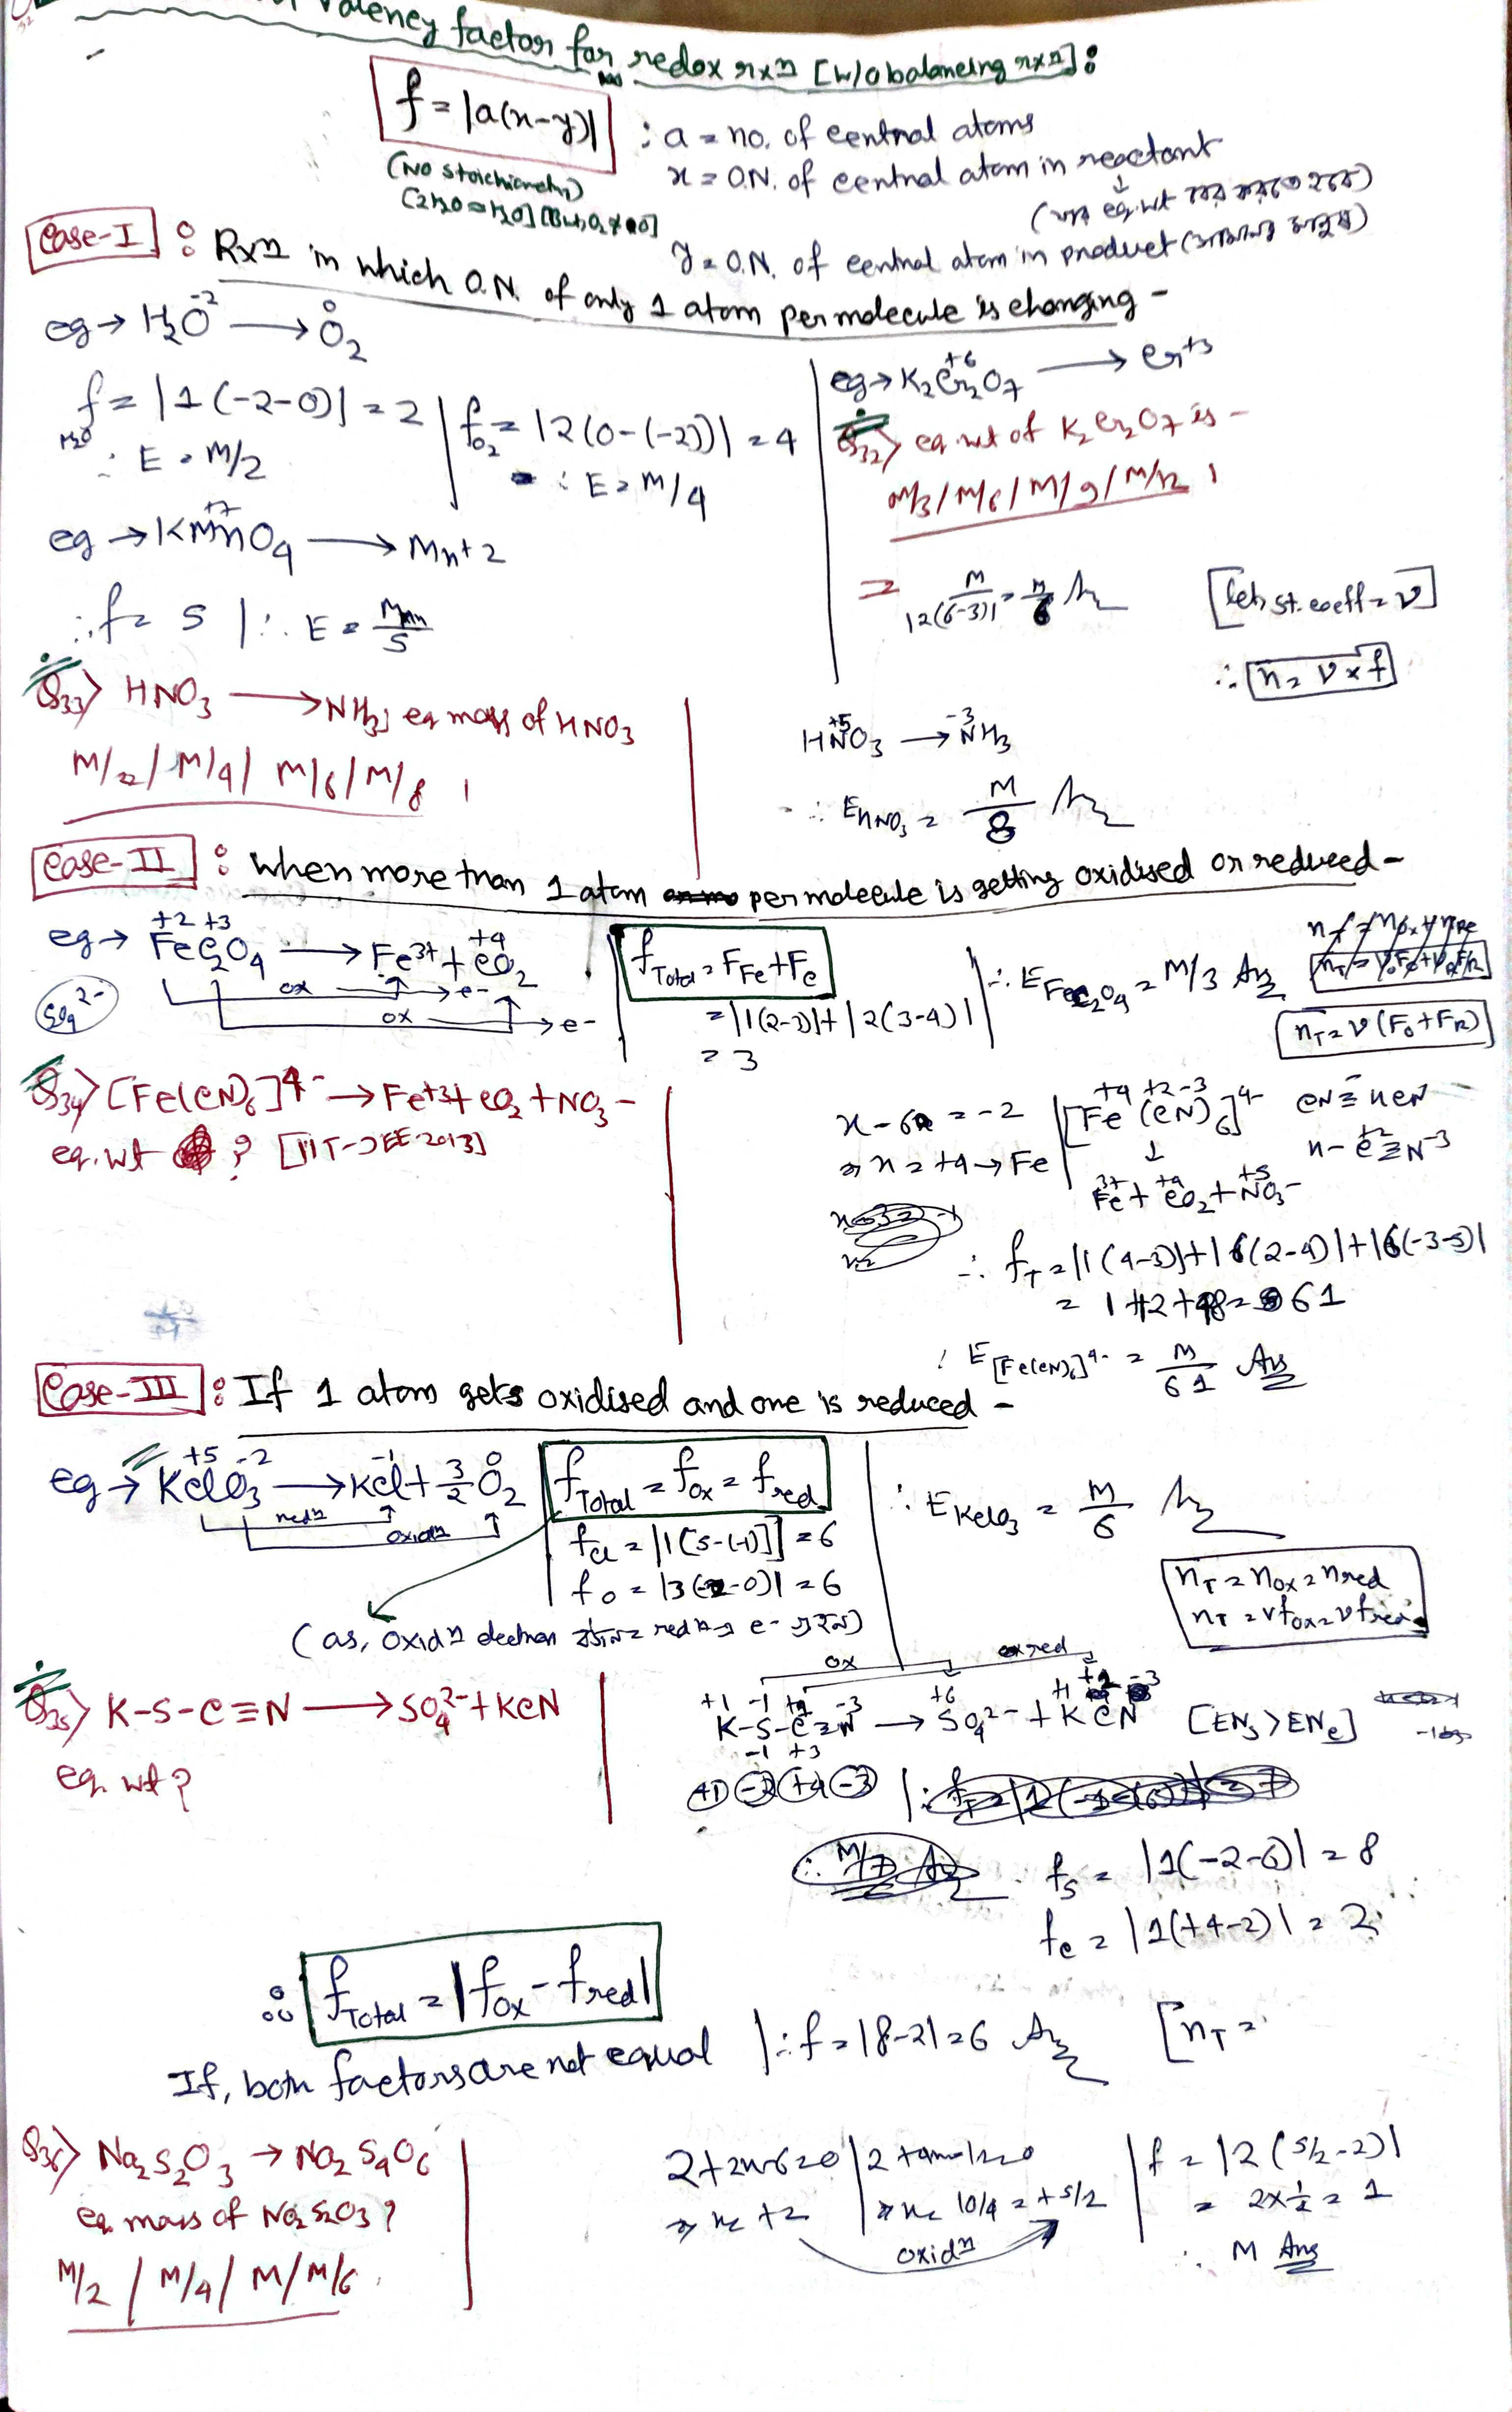 Valency factor for redox rxn [w/o balancing rxn]:
f = |a(x-y)| : a = no. of central atoms
(No stoichiometry)
x = O.N. of central atom in reactant
y = O.N. of central atom in product
Case-I : Rxn in which O.N. of only 1 atom per molecule is changing -
eg → H₂O⁻² → O₂⁰
f H₂O = |1(-2-0)| = 2
∴ E = M/2
f O₂ = |2(0-(-2))| = 4
∴ E = M/4
eg → KMnO₄ → Mn+2
+7
∴ f = 5 | ∴ E = M/5
eg → K₂Cr₂O₇ → Cr+3
+6
Q32> eq. wt of K₂Cr₂O₇ is -
M/3 / M/6 / M/9 / M/12 |
⇒ M/|2(6-3)| = M/6 Ans
[let, st. coeff = ν]
∴ n = ν × f
Q33> HNO₃ → NH₃; eq mass of HNO₃
M/2 / M/4 / M/6 / M/8 |
HNO₃ → NH₃
+5 -3
∴ E HNO₃ = M/8 Ans
Case-II : When more than 1 atom per molecule is getting oxidised or reduced -
+2 +3 +4
eg → FeC₂O₄ → Fe³⁺ + CO₂
ox → e-
ox → e-
f Total = F Fe + F C
= |1(2-3)| + |2(3-4)|
= 3
∴ E FeC₂O₄ = M/3 Ans
n T = ν (F O + F R)
Q34> [Fe(CN)₆]⁴⁻ → Fe+3 + CO₂ + NO₃-
eq. wt ? [IIT-JEE-2013]
x - 6 = -2
⇒ x = +4 → Fe
+4 +2 -3
[Fe (CN)₆]⁴⁻
↓
3+ +4 +5
Fe + CO₂ + NO₃-
∴ f T = |1(4-3)| + |6(2-4)| + |6(-3-5)|
= 1 + 12 + 48 = 61
∴ E [Fe(CN)₆]⁴⁻ = M/61 Ans
Case-III : If 1 atom gets oxidised and one is reduced -
+5 -2 -1 0
eg → KClO₃ → KCl + 3/2 O₂
redn
oxidn
f Total = f ox = f red
f Cl = |1(5-(-1))| = 6
f O = |3(-2-0)| = 6
∴ E KClO₃ = M/6 Ans
n T = n ox = n red
n T = ν f ox = ν f red
Q35> K-S-C≡N → SO₄²⁻ + KCN
eq. wt?
ox red
+1 -1 +4 -3 +6
K-S-C≡N → SO₄²⁻ + KCN [EN S > EN C]
-1 +3
+1 -2 +4 -3
f S = |1(-2-6)| = 8
f C = |1(+4-2)| = 2
∴ f Total = |f ox - f red|
If, both factors are not equal | ∴ f = |8-2| = 6 Ans
[n T =
Q36> Na₂S₂O₃ → Na₂S₄O₆
eq. mass of Na₂S₂O₃?
M/2 / M/4 / M / M/6
2+2x-6=0
⇒ x = +2
2+4x-12=0
⇒ x = 10/4 = +5/2
oxidn
f = |2(5/2-2)|
= 2×1/2 = 1
∴ M Ans